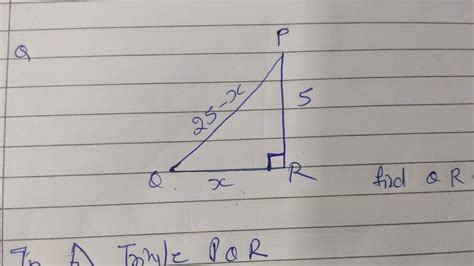 Q
P
25-x
5
Q.
x
R
find QR.
In A Triangle PQR